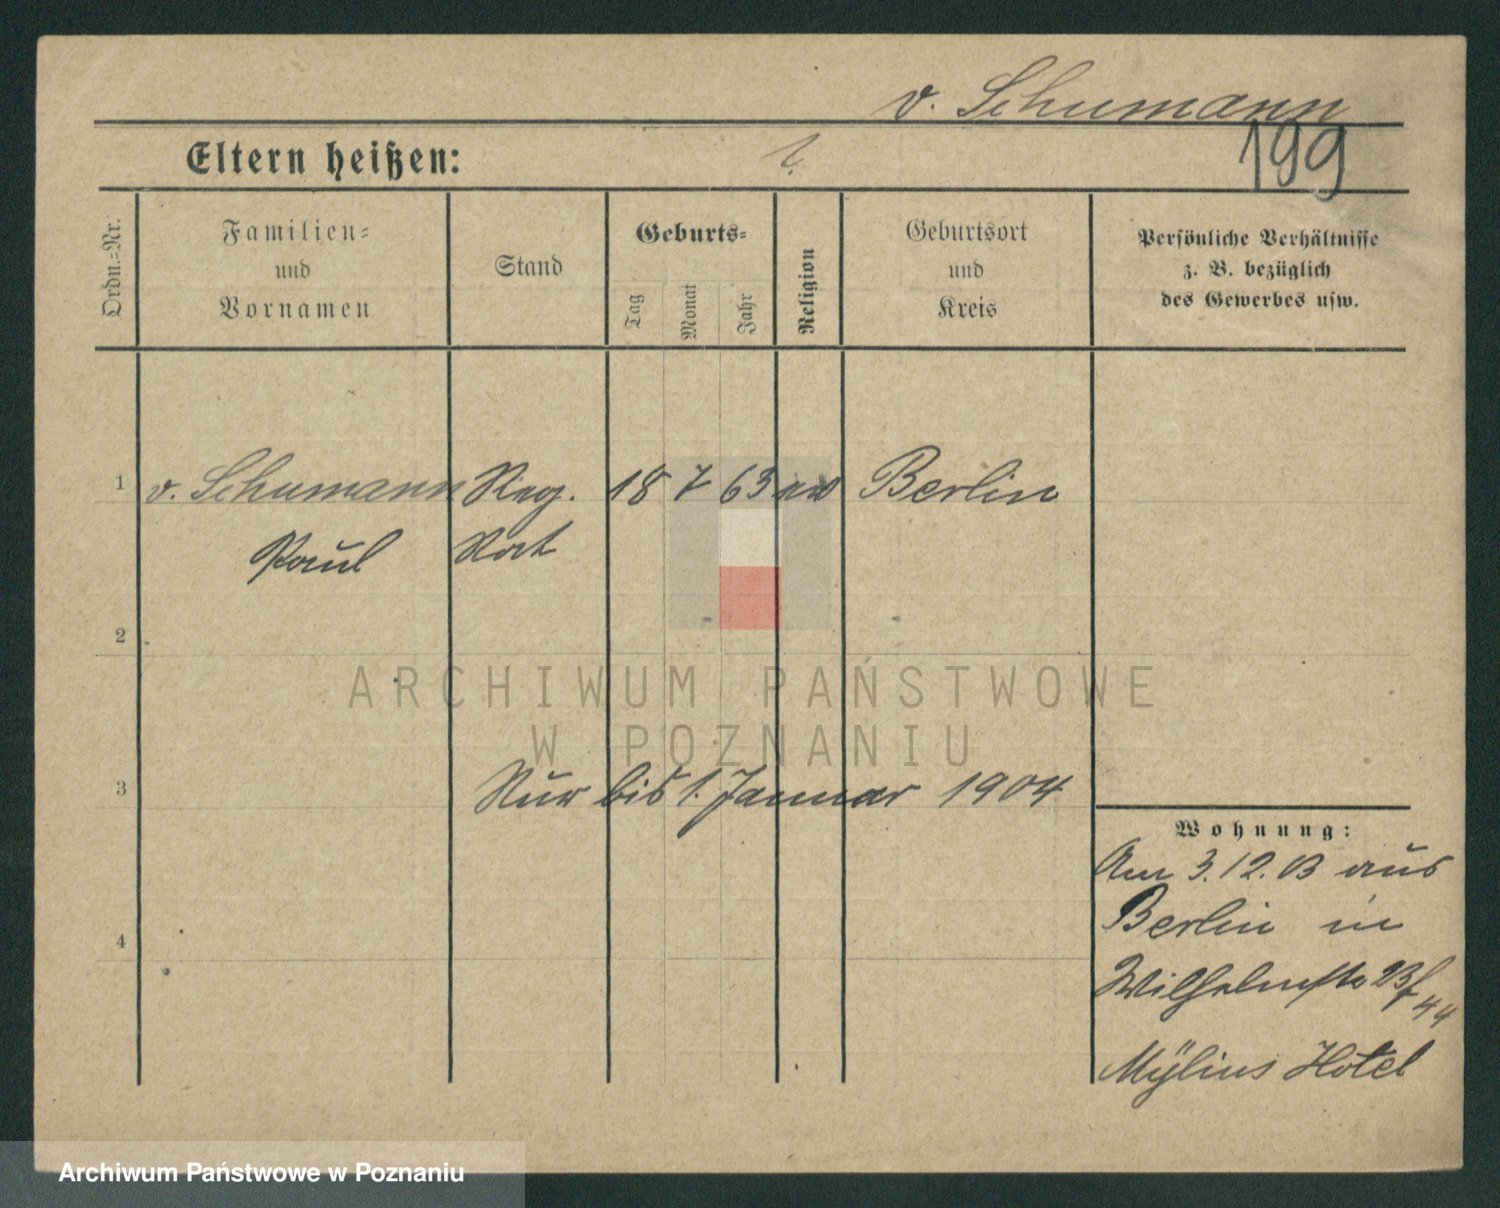 v. Schumann
199
Eltern heißen: ?.
Ordn.-Nr.
Familien-
und
Vornamen
Stand
Geburts-
Tag
Monat
Jahr
Religion
Geburtsort
und
Kreis
Persönliche Verhältnisse
z. B. bezüglich
des Gewerbes usw.
1 v. Schumann Reg. 18 7 63 ev Berlin
Paul Rat
2
ARCHIWUM PAŃSTWOWE
W POZNANIU
3 Nur bis 1. Januar 1904
Wohnung:
Am 3.12.03 aus
Berlin in
4
Mylius Hotel
Archiwum Państwowe w Poznaniu